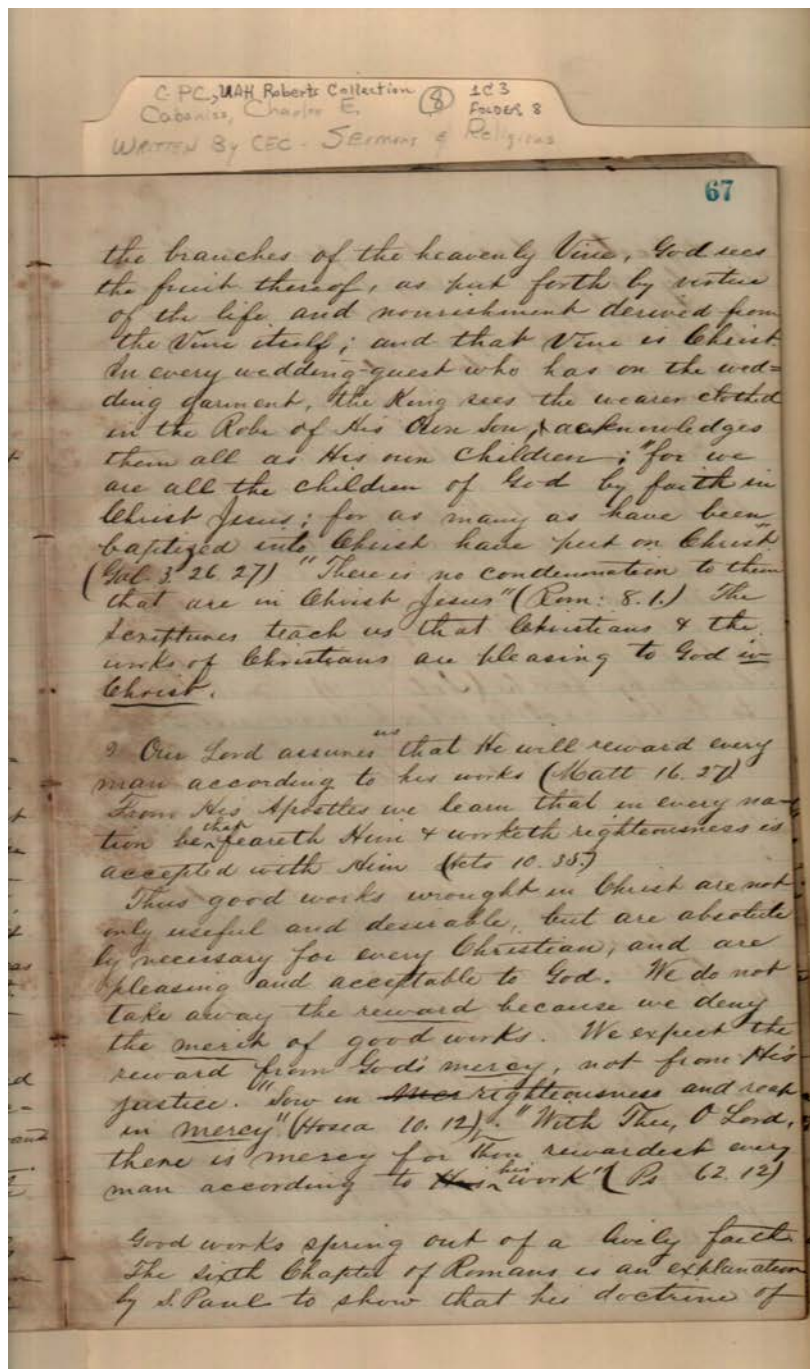 C PC, UAH Roberts Collection 8 1C3
Cabaniss, Charles E. FOLDER 8
WRITTEN By CEC - SERMONS & Religious
67
the branches of the heavenly Vine, God sees
the fruit thereof, as put forth by virtue
of the life and nourishment derived from
the Vine itself; and that Vine is Christ
In every wedding-guest who has on the wed=
ding garment, the King sees the wearer clothed
in the Robe of His Own Son, & acknowledges
them all as His own children; "for we
are all the children of God by faith in
Christ Jesus; for as many as have been
baptized into Christ have put on Christ"
(Gal. 3 26. 27) "There is no condemnation to them
that are in Christ Jesus" (Rom: 8. 1.) The
Scriptures teach us that Christians & the
works of Christians are pleasing to God in
Christ.
Our Lord assures us that He will reward every
man according to his works (Matt 16. 27)
From His Apostles we learn that in every na-
tion he that feareth Him & worketh righteousness is
accepted with Him (Acts 10. 35.)
Thus good works wrought in Christ are not
only useful and desirable, but are absolute
ly necessary for every Christian, and are
pleasing and acceptable to God. We do not
take away the reward because we deny
the merit of good works. We expect the
reward from God's mercy, not from His
justice. "Sow in righteousness and reap
in mercy" (Hosea 10. 12). "With Thee, O Lord,
there is mercy for Thou rewardest every
man according to His his work" (Ps 62. 12)
Good works spring out of a lively faith
The sixth Chapter of Romans is an explanation
by S. Paul to show that his doctrine of